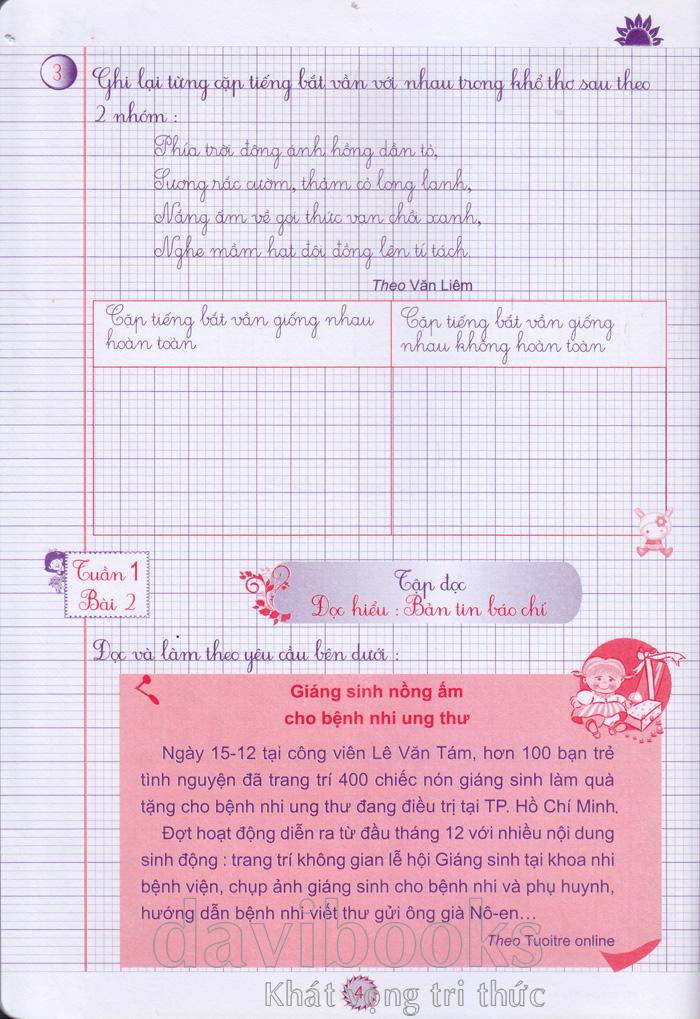 3
Ghi lại từng cặp tiếng bắt vần với nhau trong khổ thơ sau theo
2 nhóm :
Phía trời đông ánh hồng dần tỏ,
Sương rắc cườm, thảm cỏ long lanh,
Nắng ấm về gọi thức vạn chồi xanh,
Nghe mầm hạt đội đồng lên tí tách.
Theo Văn Liêm
Cặp tiếng bắt vần giống nhau
hoàn toàn
Cặp tiếng bắt vần giống
nhau không hoàn toàn
Tuần 1
Bài 2
Tập đọc
Đọc hiểu : Bản tin báo chí
Đọc và làm theo yêu cầu bên dưới :
Giáng sinh nồng ấm
cho bệnh nhi ung thư
Ngày 15-12 tại công viên Lê Văn Tám, hơn 100 bạn trẻ
tình nguyện đã trang trí 400 chiếc nón giáng sinh làm quà
tặng cho bệnh nhi ung thư đang điều trị tại TP. Hồ Chí Minh.
Đợt hoạt động diễn ra từ đầu tháng 12 với nhiều nội dung
sinh động : trang trí không gian lễ hội Giáng sinh tại khoa nhi
bệnh viện, chụp ảnh giáng sinh cho bệnh nhi và phụ huynh,
hướng dẫn bệnh nhi viết thư gửi ông già Nô-en…
Theo Tuoitre online
davibooks
4
Khát vọng tri thức